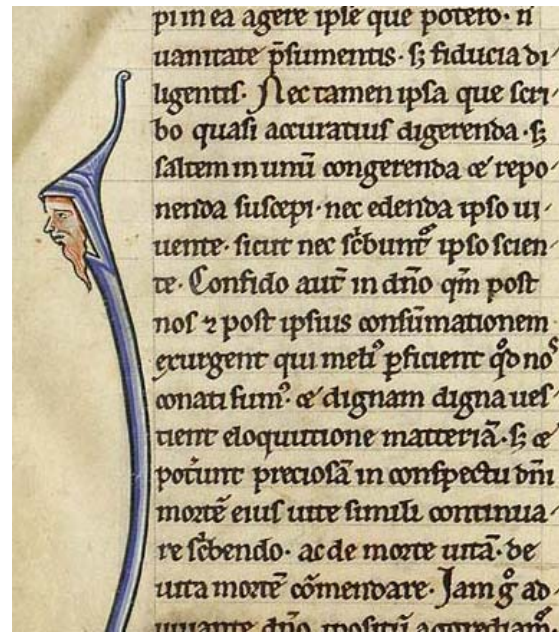 pi in ea agere ipse que potero· n̄
uanitate p̄sumentis· sꝫ fiducia di-
ligentis· Nec tamen ipsa que scri
bo quasi accuratius digerenda· sꝫ
saltem in unū congerenda ⁊ repo-
nenda suscepi· nec edenda ipso ui-
uente· sicut nec sc̄bunt᷑ ipso scien-
te· Confido aut̄ in dn̄o qm̄ post
nos ⁊ post ipsius consūmationem
exurgent qui meli᷒ ꝑficient qͦd noˢ
conati sum᷒· ⁊ dignam digna ues-
tient eloquutione matteriā· sꝫ ⁊
pot̄unt preciosā in conspectu dn̄i
mortē eius uite simili continua-
re sc̄bendo· ac de morte uitā· de
uita mortē cōmendare· Jam gͦ ad-
iuuante dn̄o ꝓpositū aggrediam᷑